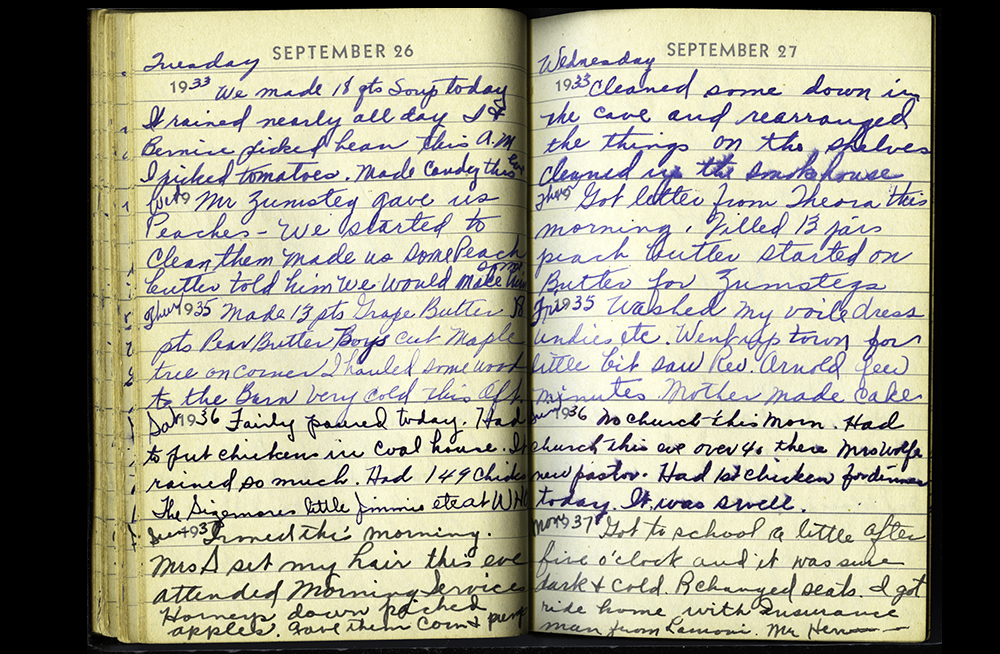 SEPTEMBER 26
Tuesday
1933 We made 18 qts Soup today
It rained nearly all day I &
Bernice picked bean this A.M
I picked tomatoes. Made Candy this eve
1934 Mr Zumsteg gave us
Peaches - We started to
Clean them Made us some Peach
butter told him We would make some
Thur 1935 Made 13 pts Grape Butter 18
pts Pear Butter Boys cut Maple
tree on corner I hauled some wood
to the Barn Very cold this Aft.
Sat 1936 Fairly poured today. Had
to put chickens in Coal house. It
rained so much. Had 149 Chicks
The Sizemores little Jimmie etc at
Sun 1937 Ironed this morning.
Mrs S set my hair this eve
attended Morning Services
Horneys down picked
apples. Gave them Corn &
SEPTEMBER 27
Wednesday
1933 Cleaned some down in
the cave and rearranged
the things on the shelves
cleaned up the smokhouse
Thurs Got letter from Theora this
morning. Filled 13 jars
peach butter started on
Butter for Zumstegs
Fri 1935 Washed my voile dress
undies etc. Went up town for
little bit saw Rev. Arnold few
minutes. Mother made Cake
Sun 1936 No church this Morn. Had
church this eve over 40 there Mrs Wolfe
new pastor. Had 1st chicken for dinner
today. It was swell.
Mon 1937 Got to school a little after
five o'clock and it was sure
dark & cold. Rchanged seats. I got
ride home with Insurance
man from Lamoni. Mr